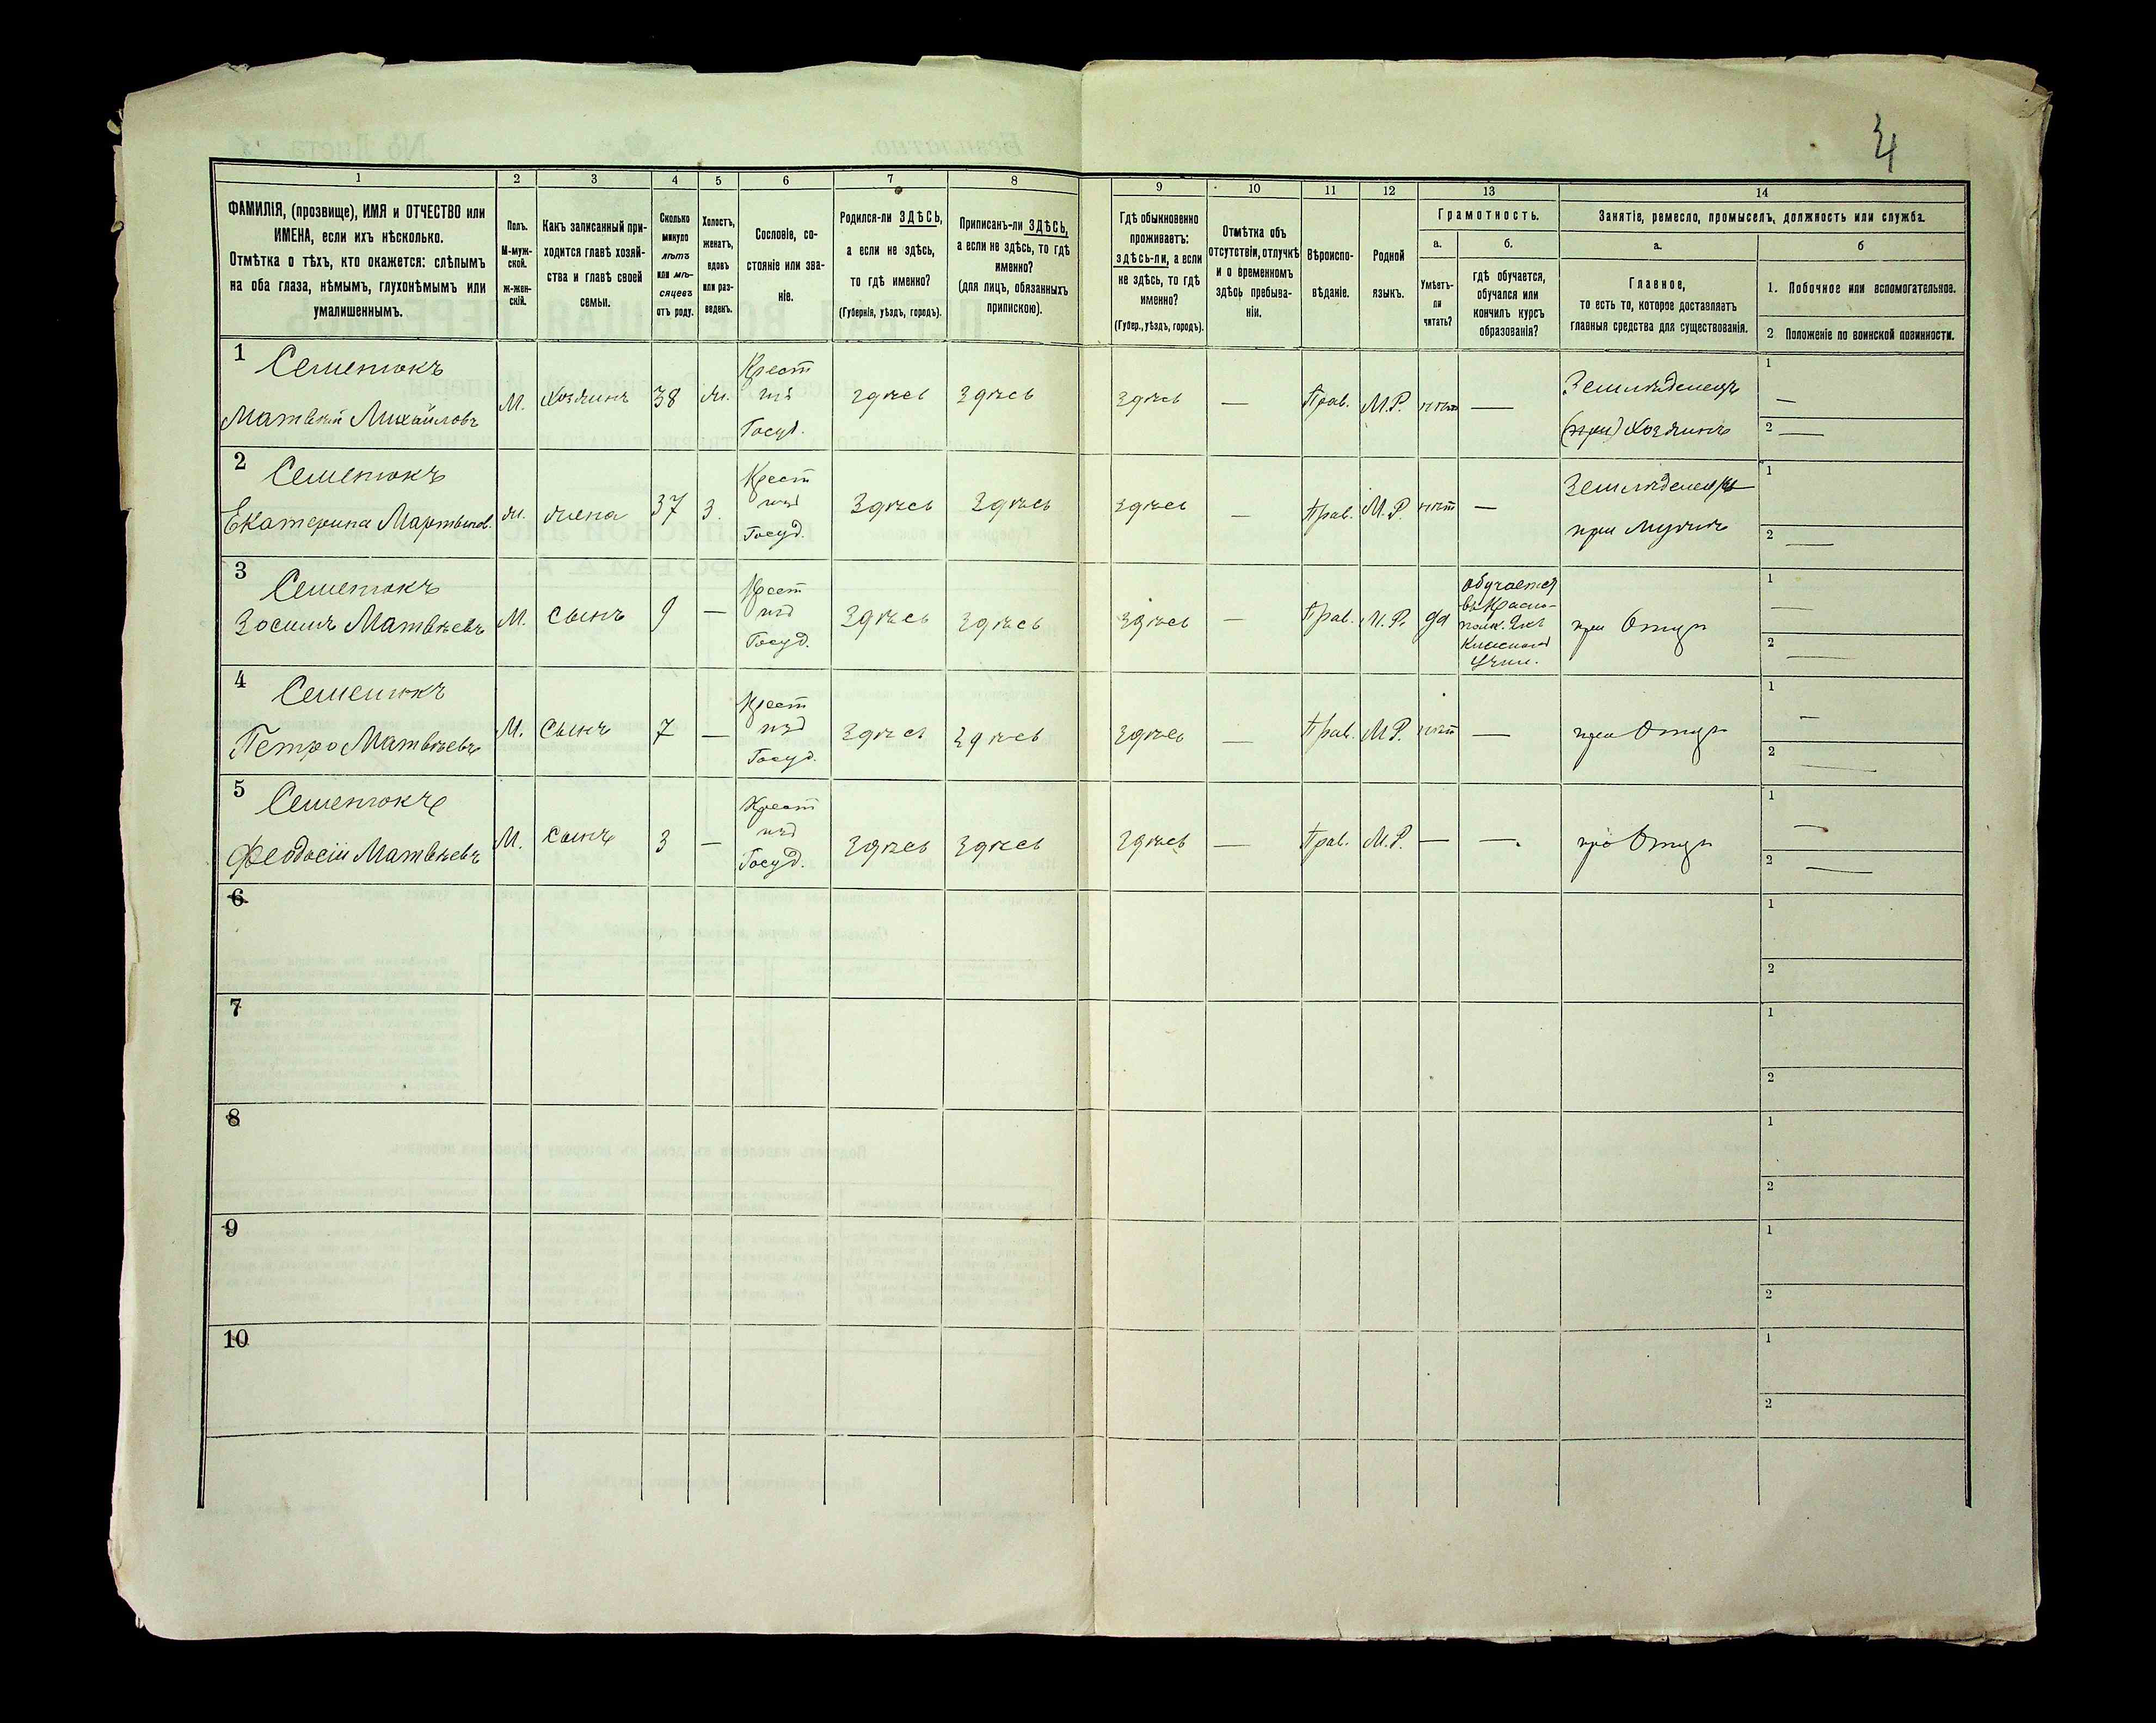 4
1 2 3 4 5 6 7 8 9 10 11 12 13 14
ФАМИЛІЯ, (прозвище), ИМЯ и ОТЧЕСТВО или
ИМЕНА, если ихъ нѣсколько.
Отмѣтка о тѣхъ, кто окажется: слѣпымъ
на оба глаза, нѣмымъ, глухонѣмымъ или
умалишеннымъ.
Полъ.
М-муж-
ской.
Ж-жен-
скій.
Какъ записанный при-
ходится главѣ хозяй-
ства и главѣ своей
семьи.
Сколько
минуло
лѣтъ
или мѣ-
сяцевъ
отъ роду.
Холостъ,
женатъ,
вдовъ
или раз-
веденъ.
Сословіе, со-
стояніе или зва-
ніе.
Родился-ли ЗДѢСЬ,
а если не здѣсь,
то гдѣ именно?
(Губернія, уѣздъ, городъ).
Приписанъ-ли ЗДѢСЬ,
а если не здѣсь, то гдѣ
именно?
(для лицъ, обязанныхъ
припискою).
Гдѣ обыкновенно
проживаетъ:
здѣсь-ли, а если
не здѣсь, то гдѣ
именно?
(Губер., уѣздъ, городъ).
Отмѣтка объ
отсутствіи, отлучкѣ
и о временномъ
здѣсь пребыва-
ніи.
Вѣроиспо-
вѣданіе.
Родной
языкъ.
Грамотность.
а.
Умѣетъ-
ли
читать?
б.
гдѣ обучается,
обучался или
кончилъ курсъ
образованія?
Занятіе, ремесло, промыселъ, должность или служба.
а.
Главное,
то есть то, которое доставляетъ
главныя средства для существованія.
б
1. Побочное или вспомогательное.
2 Положеніе по воинской повинности.
1 Семенюкъ
Матвѣй Михайловъ
М. Хозяинъ 38 ж.
Крест
изъ
Госуд.
Здѣсь Здѣсь Здѣсь — Прав. М.Р. нѣт —
Земледелецъ
(при) Хозяинъ
1 —
2 —
2 Семенюкъ
Екатерина Мартынов.
ж. жена 37 З.
Крест
изъ
Госуд.
Здѣсь Здѣсь Здѣсь — Прав. М.Р. нѣт —
Земледелецъ
при мужѣ
1
2 —
3 Семенюкъ
Зосимъ Матвѣевъ
М. сынъ 9 —
Крест
изъ
Госуд.
Здѣсь Здѣсь Здѣсь — Прав. М.Р. да
обучается
при Отцѣ
1 —
2 —
4 Семенюкъ
Петро Матвѣевъ
М. сынъ 7 —
Крест
изъ
Госуд.
Здѣсь Здѣсь Здѣсь — Прав. М.Р. нѣт —
при Отцѣ
1 —
2 —
5 Семенюкъ
Феодосій Матвѣевъ
М. сынъ 3 —
Крест
изъ
Госуд.
Здѣсь Здѣсь Здѣсь — Прав. М.Р. — —.
при Отцѣ
1 —
2 —
6
1
2
7
1
2
8
1
2
9
1
2
10
1
2